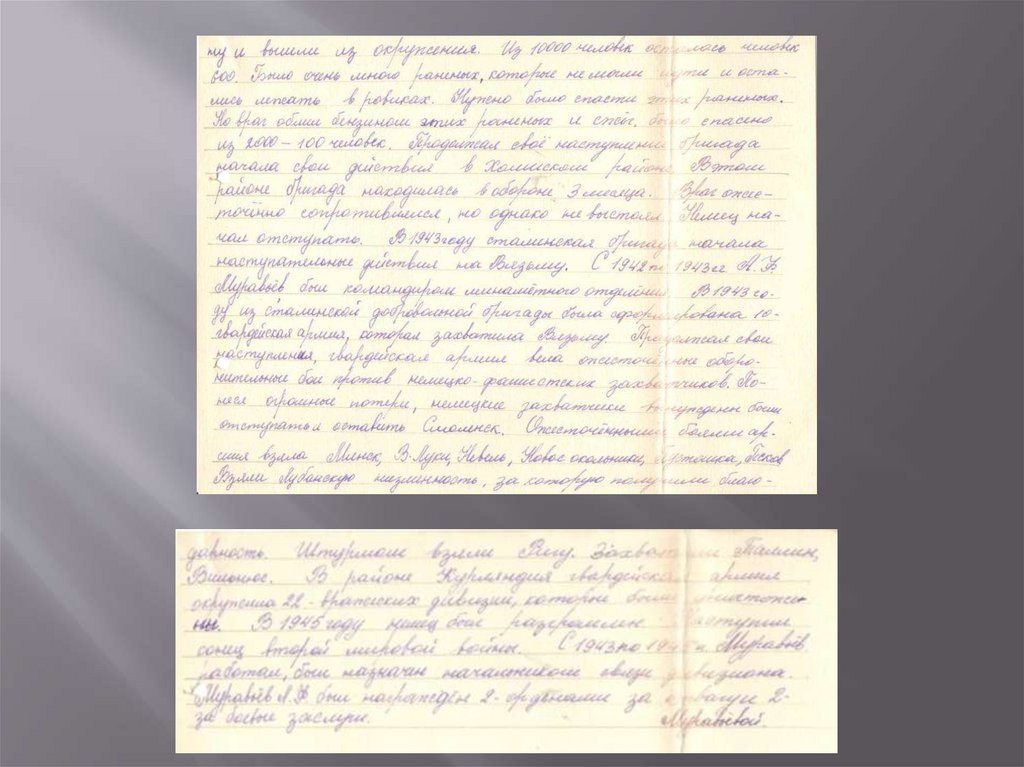 ту и вышли из окружения. Из 10000 человек осталось человек
600. Было очень много раненых, которые не могли идти и оста-
лись лежать в ровиках. Нужно было спасти этих раненых.
Но враг облил бензином этих раненых и сжёг. было спасено
из 2000 – 100 человек. Продолжая своё наступление бригада
начала свои действия в Холмском районе. В этом
районе бригада находилась в обороне 3 месяца. Враг ожес-
точённо сопротивлялся, но однако не выстоял. Немец на-
чал отступать. В 1943 году сталинская бригада начала
наступательные действия на Вязьму. С 1942 по 1943 гг.
Муравьёв был командиром миномётного отделения. В 1943 го-
ду из сталинской добровольной бригады была сформирована 10-
гвардейская армия, которая захватила Вязьму. Продолжая свои
наступления, гвардейская армия вела ожесточённые оборо-
нительные бои против немецко-фашистских захватчиков. По-
неся огромные потери, немецкие захватчики вынуждены были
отступать и оставить Смоленск. Ожесточёнными боями ар-
мия взяла Минск, В-Луки, Невель, Новосокольники, Псков
Взяли Лубанскую низменность, за которую получили благо-
дарность. Штурмом взяли Ригу. Захватили Таллин,
Вильнюс. В районе Курляндия гвардейская армия
окружила 22-вражеских дивизии, которые были уничтоже-
ны. В 1945 году немец был разгромлен. Наступил
конец второй мировой войны. С 1943 по 1945 г. Муравьёв
работал, был назначен начальником связи дивизиона.
Муравьёв был награждён 2-орденами за отвагу и 2-
за боевые заслуги. Муравьёвой.